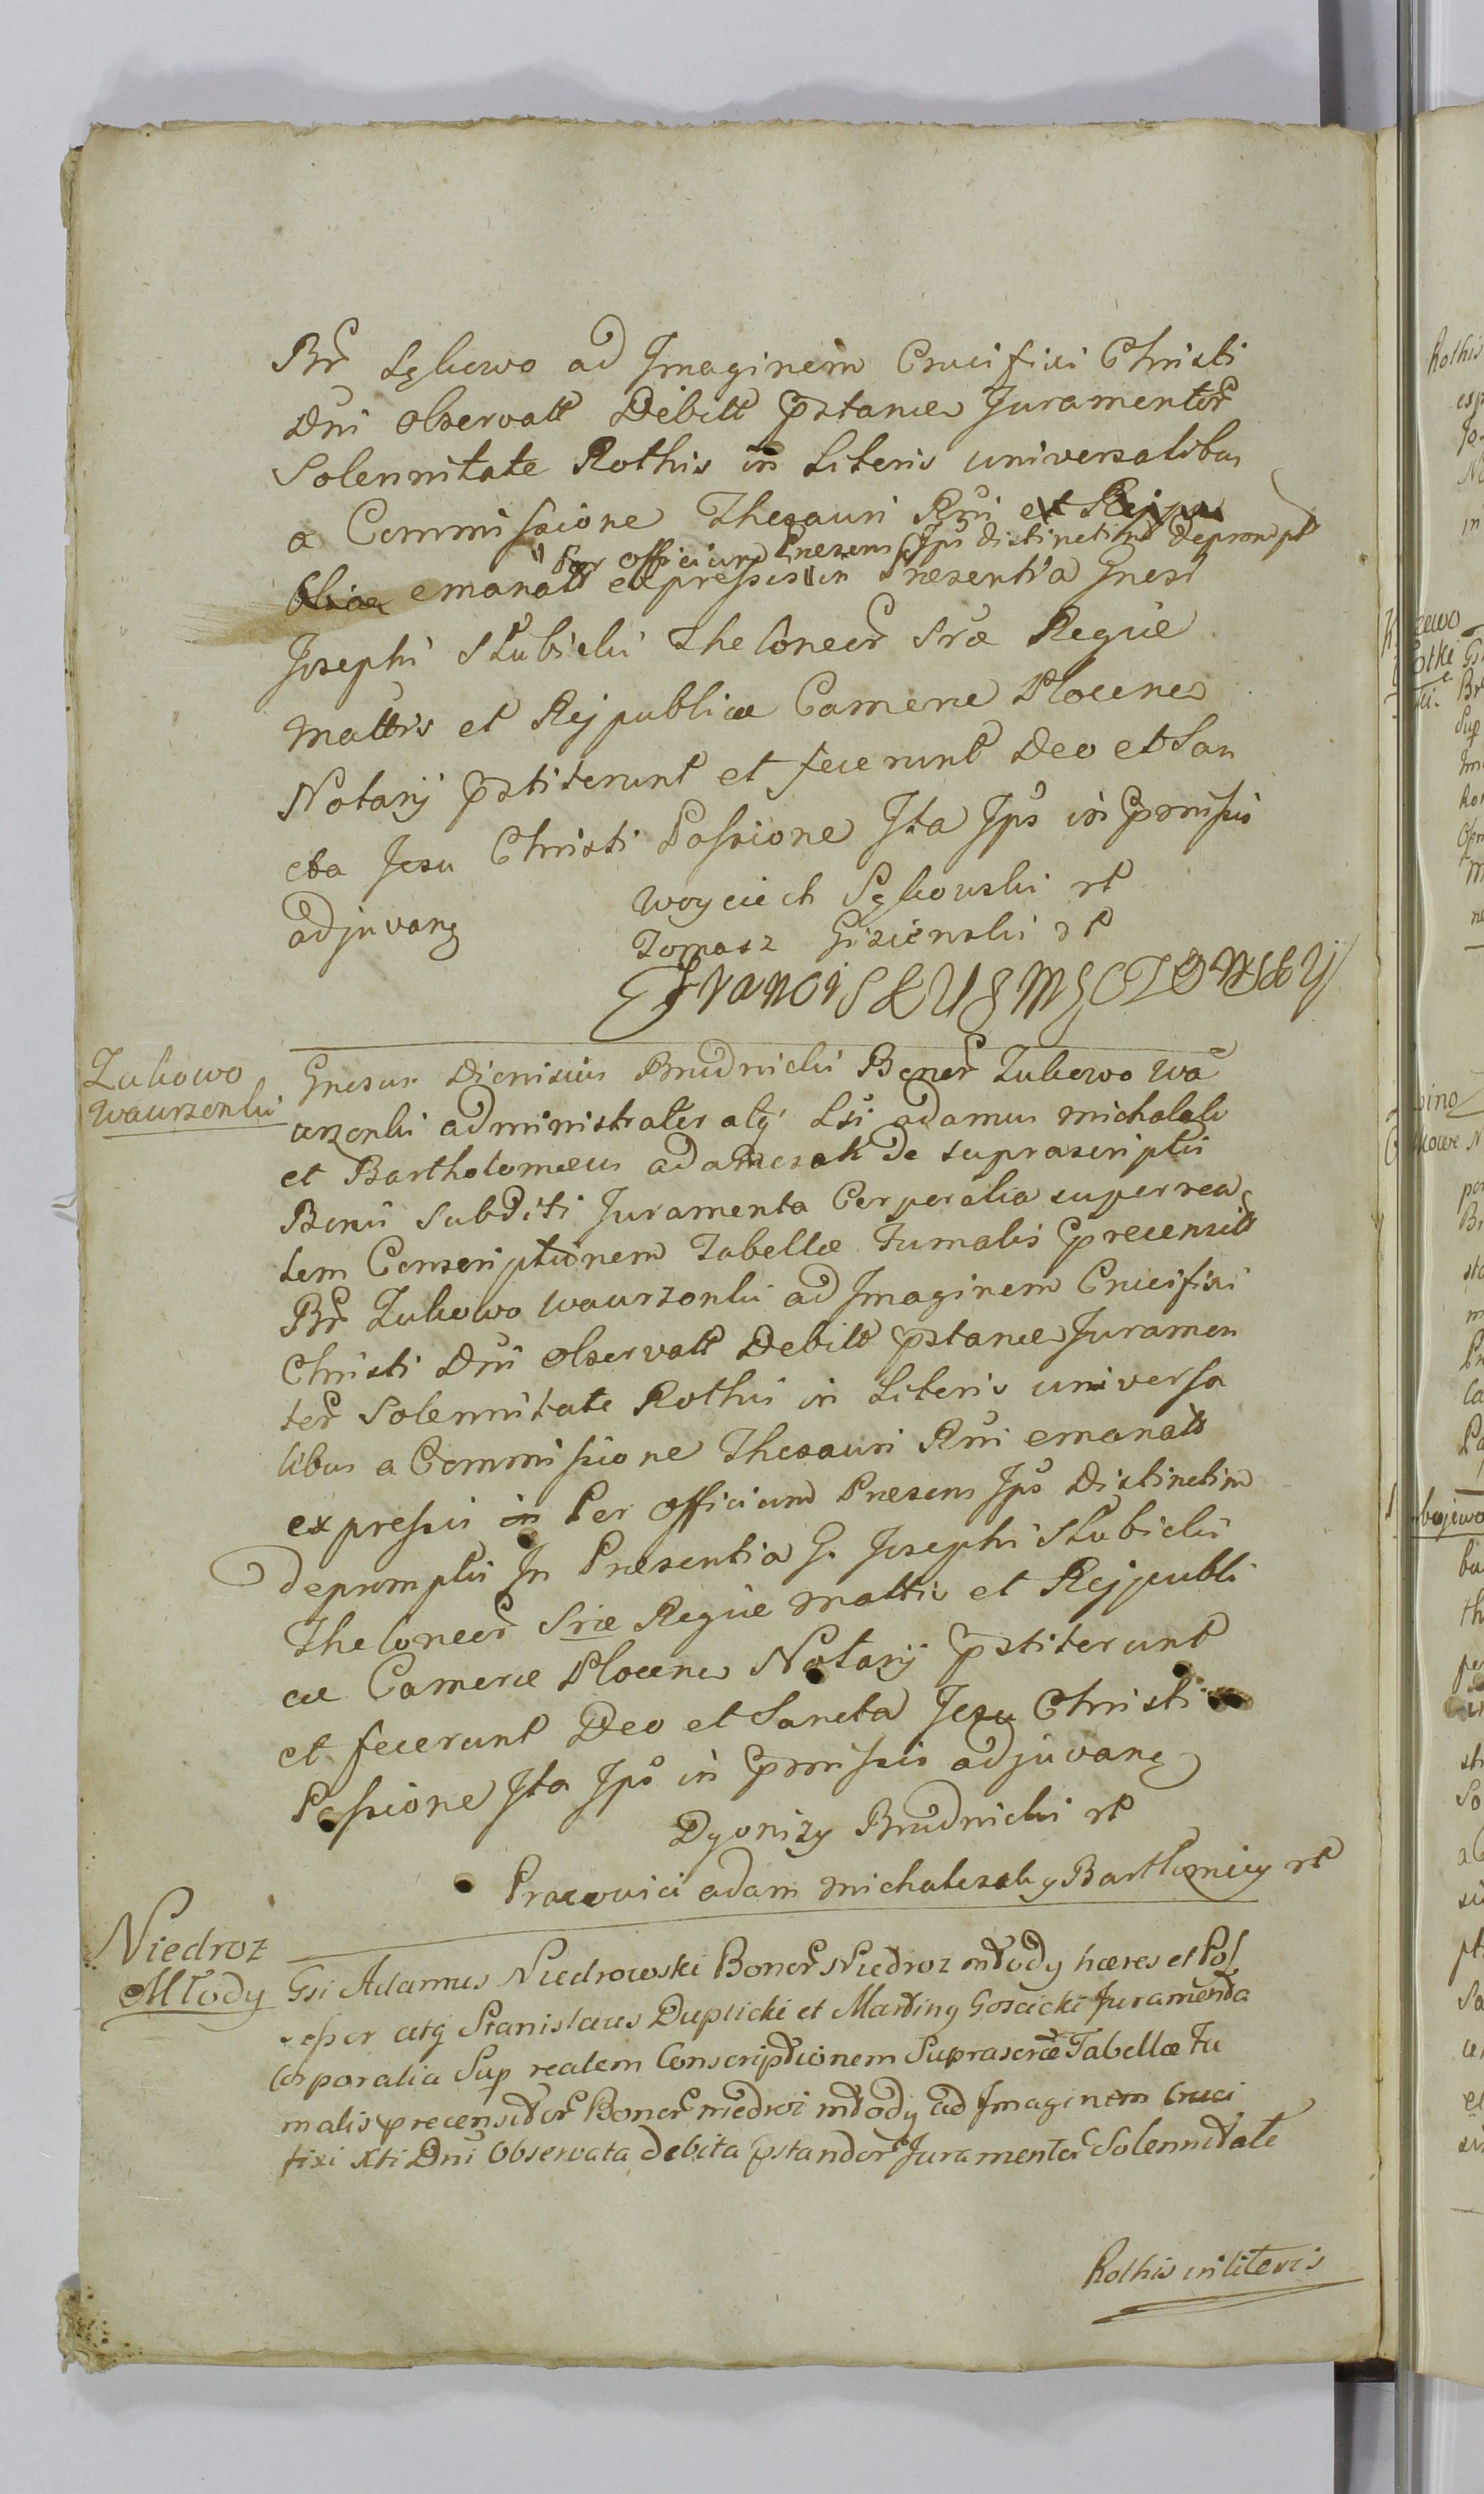 Br Sękowo ad Imaginem Crucifixi Christi
Dni observatt Debitt pstanda Juramentor
Solennitate Rothis in Literis universalibus
a Commissione Thesauri Rni et Rejpu
blicae emanatt expressis in Presentia Gnesi
per officium Presens Ips distinctim Deprompt
Josephi Słubicki Theloneor Srae Regiae
Mattis et Rejpublicae Camerae Plocens
Notarij pstiterunt et fecerunt Deo et San
cta Jesu Christi Passione Ita Ips in pmissis
adjuvan
Woyciech Sękowski rt
Tomasz Gizienski rt
Franciskus Msctowsky
Zukowo
Wawrzonki
Gnesus Dionisius Brudnicki Boner Zukowo Wa
wrzonki administrator atq Lsi adamus michalak
et Bartholomaeus adamczak de suprascriptis
Bonis Subditi Juramenta Corporalia super rea
lem Conscriptionem Tabellae Fumalis precensitt
Br Zukowo Wawrzonki ad Imaginem Crucifixi
Christi Dni observatt Debitt pstanda Juramen
tor Solennitate Rothis in Literis universa
libus a Commissione Thesauri Rni emanatt
expressis in Per officium Presens Ips Distinctim
depromptis In Presentia G. Josephi Słubicki
Theloneor Srae Regiae Mattis et Rejpubli
cae Camerae Plocens Notarij pstiterunt
et fecerunt Deo et Sancta Jesu Christi
Passione Ita Ips in pmissis adjuvan
Dyonizy Brudnicki rt
Pracowici adam michalczak y Bartlomiey rt
Niedroz
Młody
Gsi Adamus Niedrowski Bonor Niedroz młody haeres et Pos
sessor atq Stanislaus Duplicki et Marting Goscicki Juramenta
Corporalia Sup realem Conscriptionem Suprascrae Tabellae Fu
malis precensitor Bonor niedroz młody ad Imaginem Cruci
fixi Xti Dni Observata debita pstandor Juramentor Solennitate
Rothis in literis